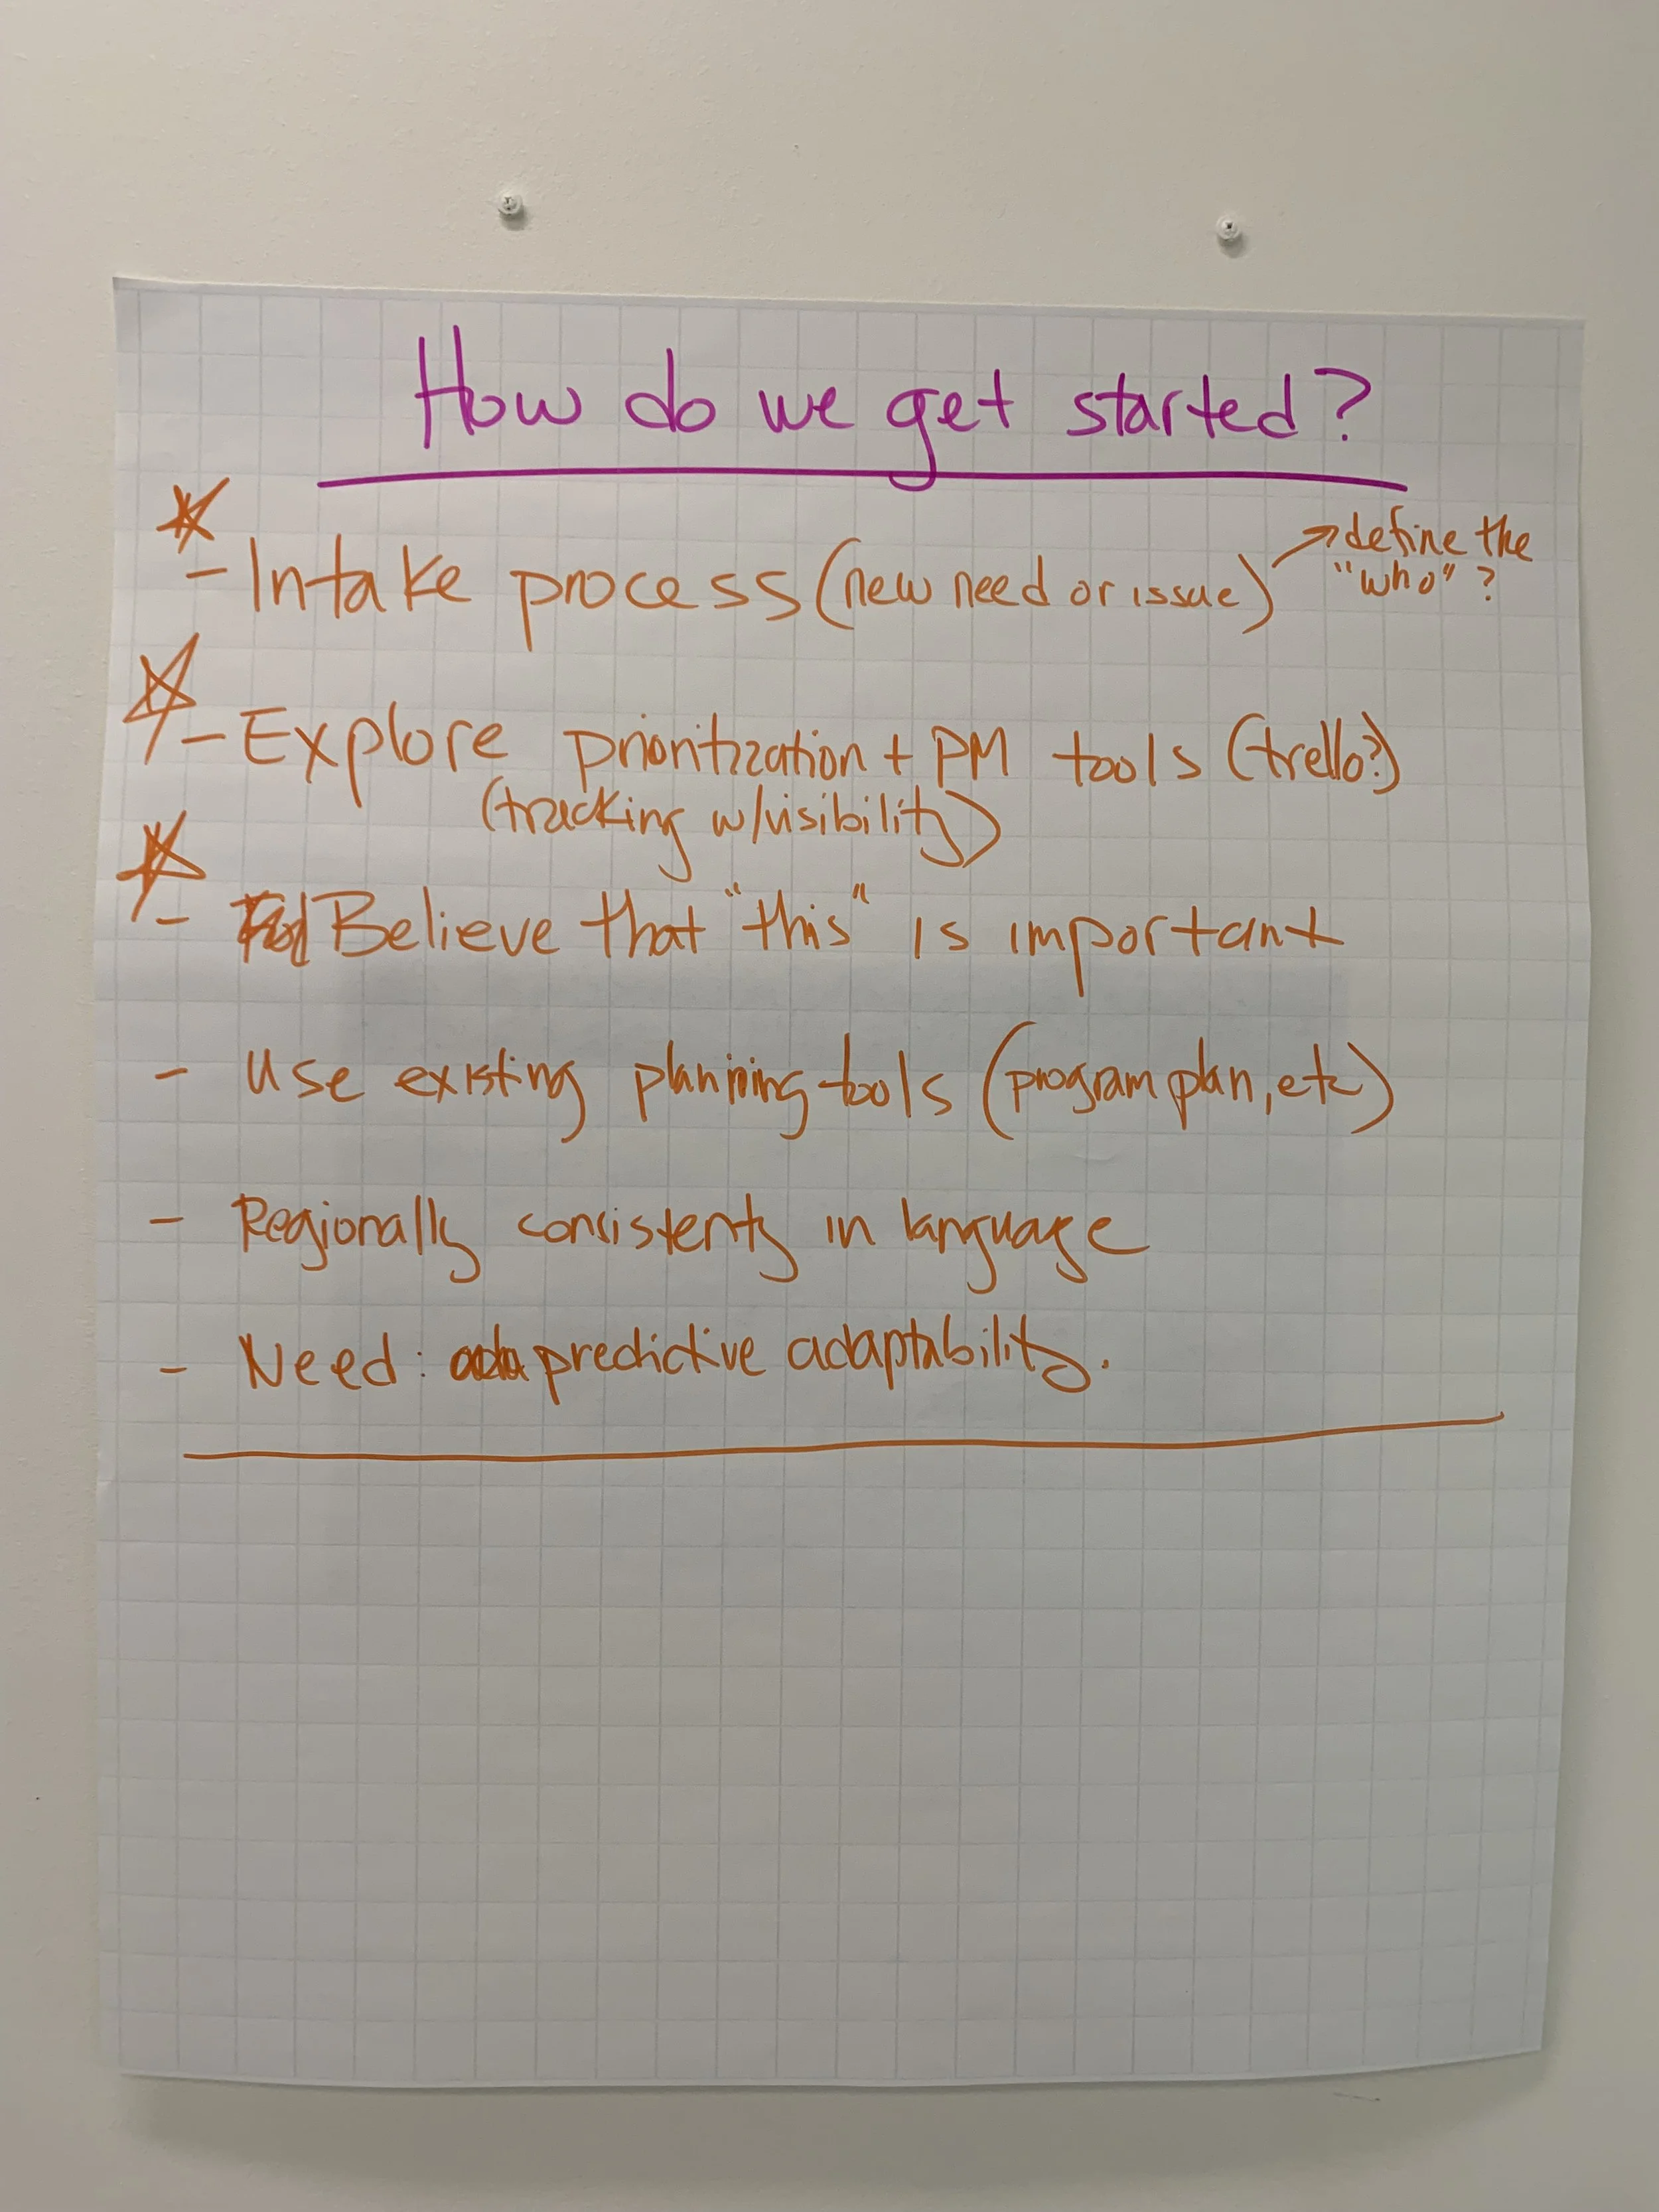 How do we get started?
- Intake process (new need or issue) → define the
"who"?
- Explore prioritization + PM tools (trello?)
(tracking w/visibility)
- Believe that "this" is important
- Use existing planning tools (program plan, etc)
- Regionally consistently in language
- Need: predictive adaptability.